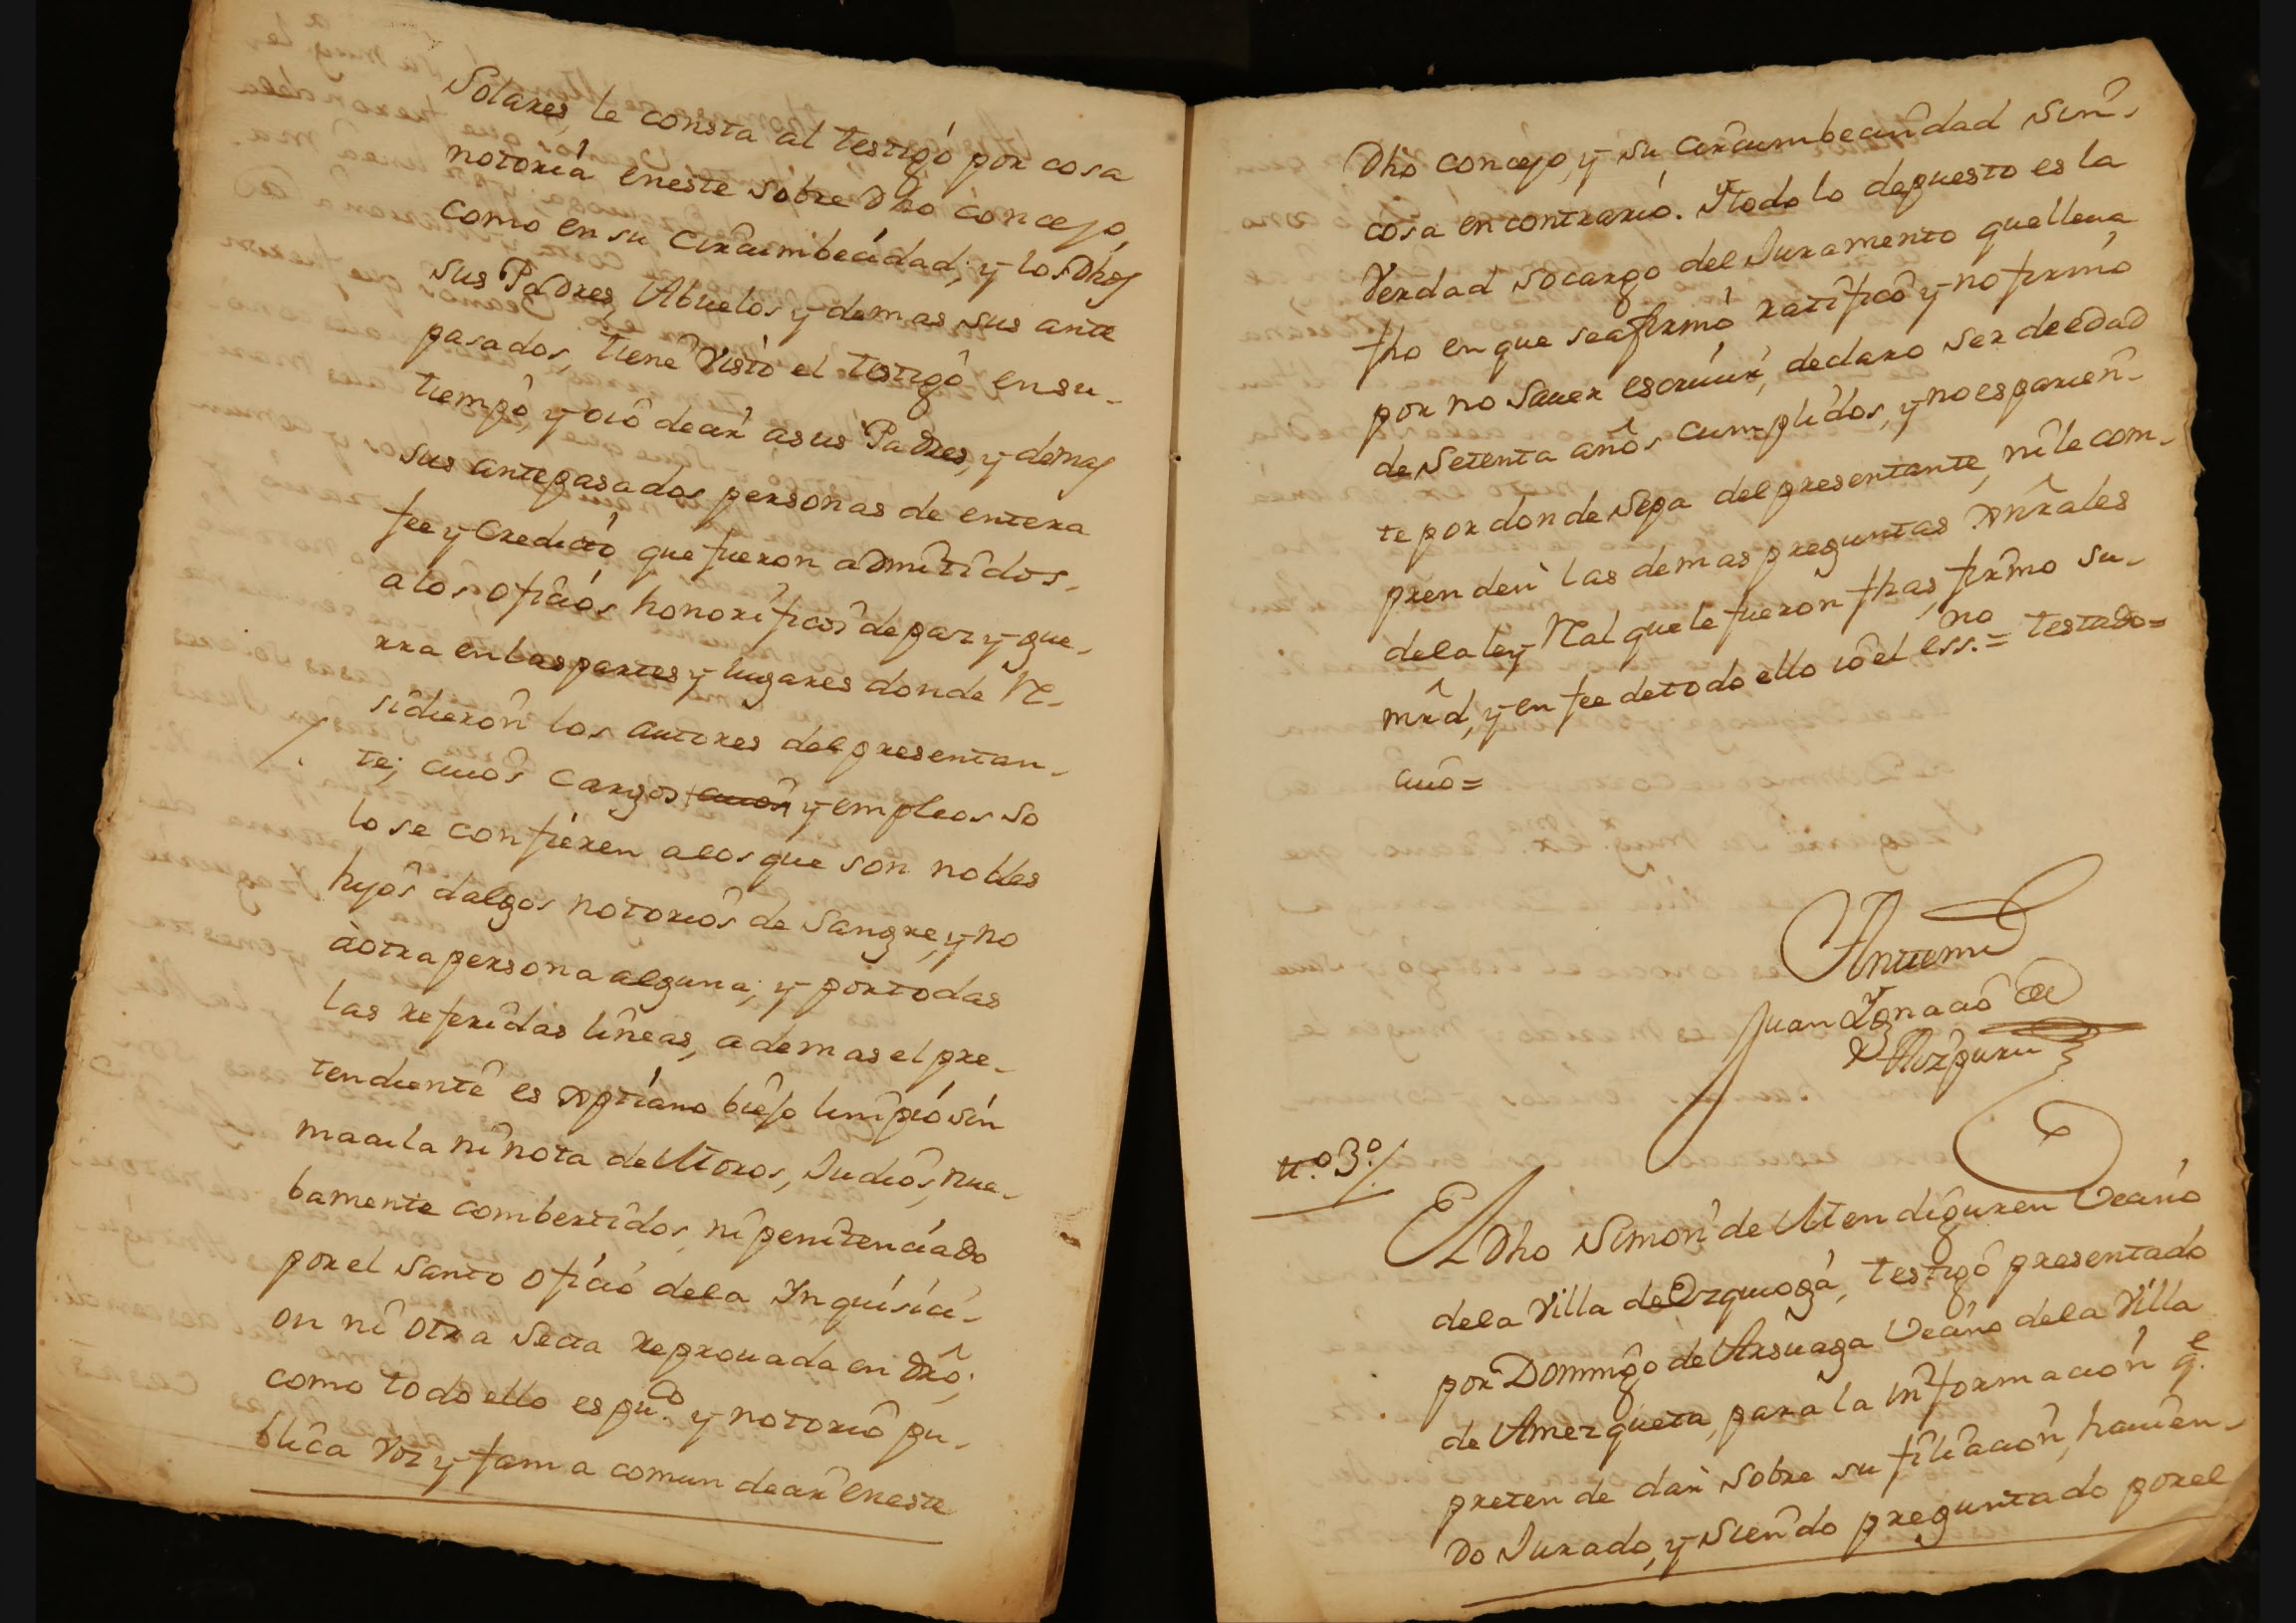 Solares, le consta al testigo por cosa
notoria en este sobre Dho concejo,
como en su circumbecidad; y los Dhos
sus Padres, Abuelos y demas sus ante
pasados, tiene visto el testigo en su-
tiempo, y oio decir a sus Padres, y demas
sus antepasados personas de entera
fee y credicio que fueron admitidos-
a los oficios honorificos de paz y gue-
rra en las partes y lugares donde re-
sidieron los autores del presentan-
te; cuios cargos cuios y empleos so
lo se confieren a los que son nobles
hijos dalgos notorios de Sangre, y no
à otra persona alguna; y por todas
las referidas lineas, ademas el pre-
tendiente es xptiano biejo limpio sin
macula ni nota de Moros, Judios, nue-
bamente combertidos, ni penitenciado
por el Santo oficio de la Inquisici-
on ni otra Secta reprouada en dro;
como todo ello es pu.co y notorio pu-
blica voz y fama comun decir en este
Dho concejo, y su circumbecindad sin-
cosa en contrario. Y todo lo depuesto es la
Verdad so cargo del Juramento que lleua
fho en que se afirmó ratificó y no firmó
por no Sauer escriuir, declaro ser de edad
de Setenta años cumplidos, y no es parien-
te por donde Sepa del presentante, ni le com-
prenden las demas preguntas xnrales
de la ley Real que le fueron fhas, firmo su-
mrd, y en fee de todo ello io el ess.no = testado =
cuio =
Antemi
Juan Ygnacio de
Aizpuru
n.o 3.o /.
El Dho Simon de Mendiguren Vecino
de la Villa de Ezquioga, testigo presentado
por Domingo de Arsuaga Vecino de la Villa
de Amezqueta, para la informacion q.e
pretende dar sobre su filiacion, hauien-
do Jurado, y siendo preguntado por el